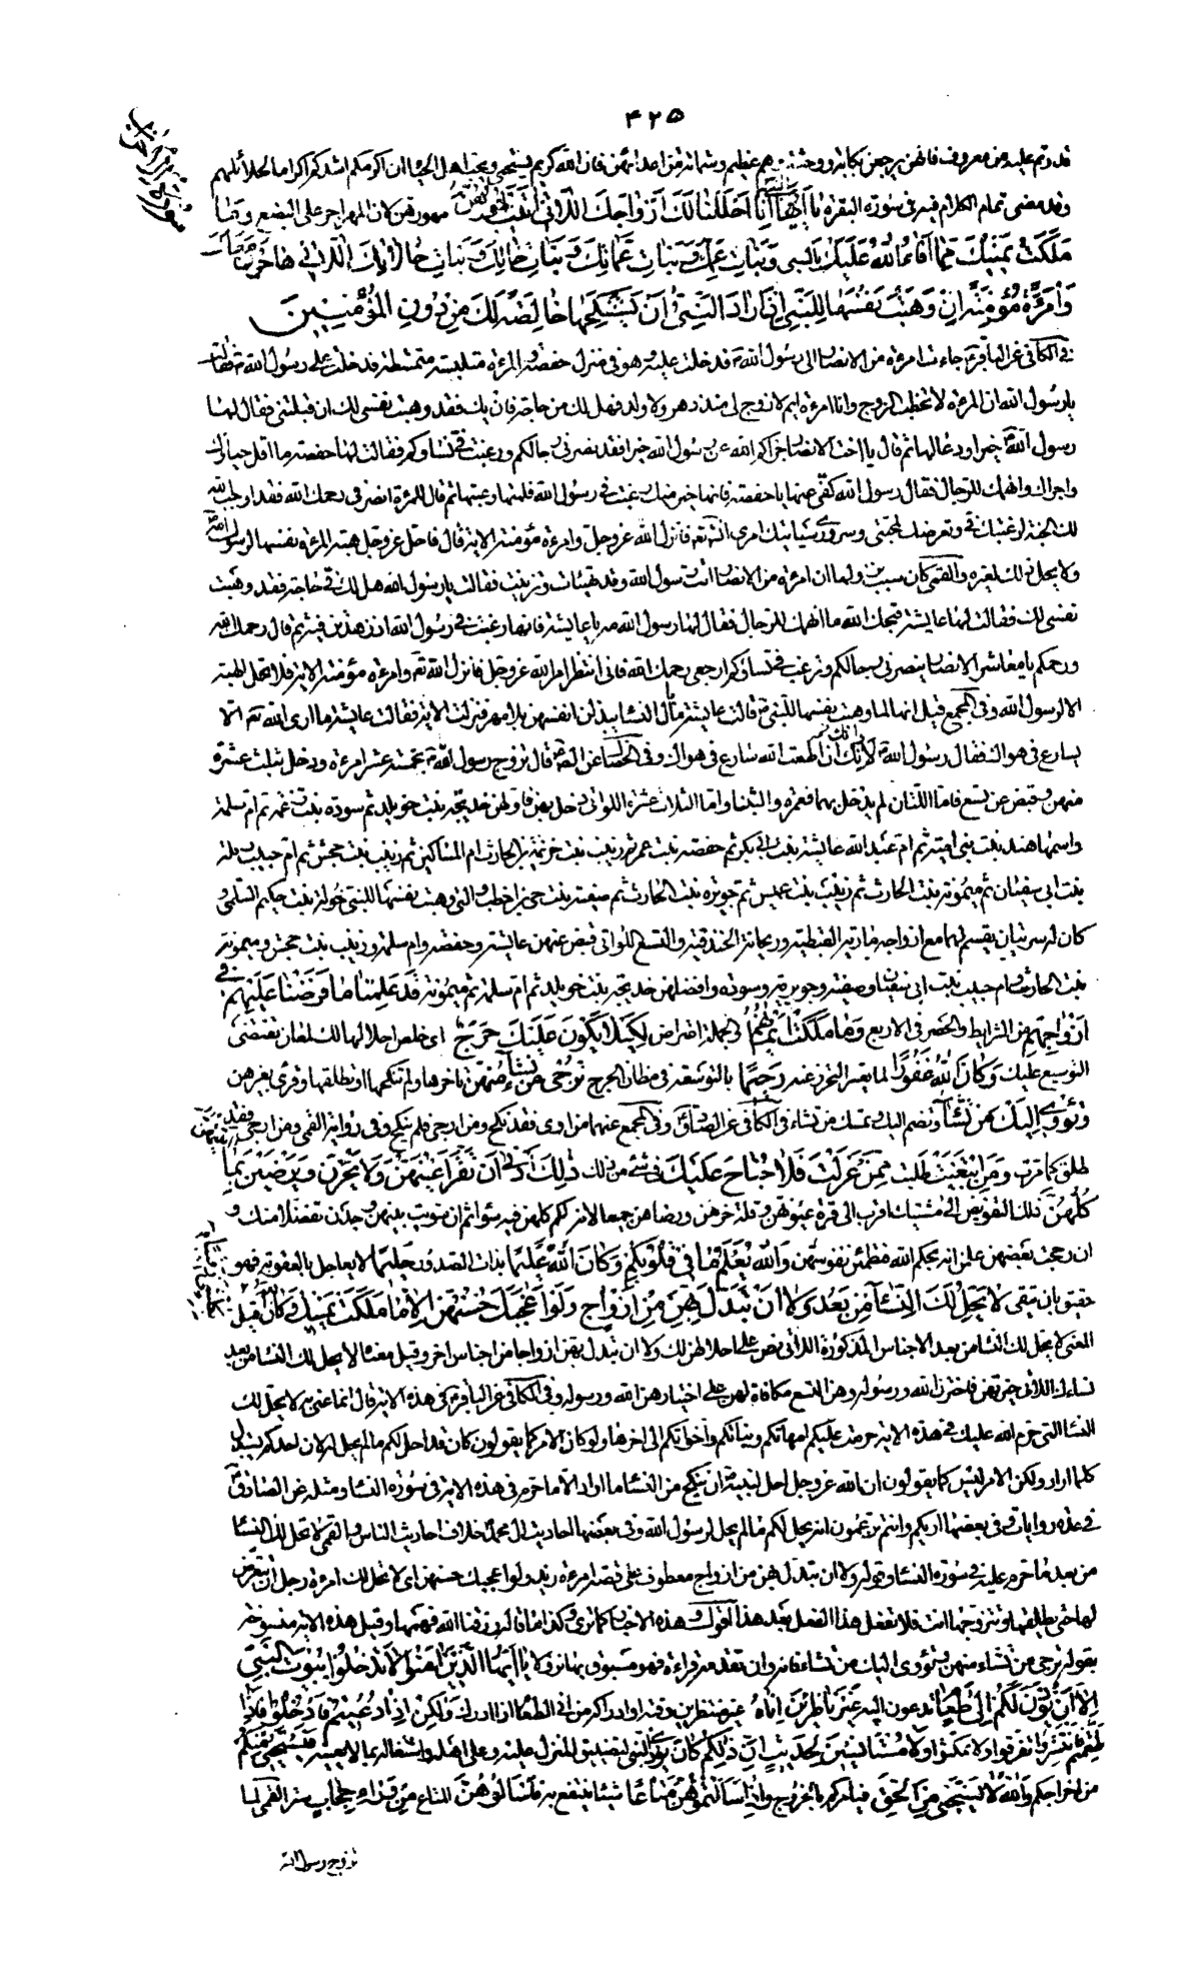 ٤٢٥
سورة الاحزاب
قدرتم عليه من معروف فانهن يرجعن بكابة ووحشة وهم عظيم وشماتة من اعدائهن فان الله كريم يستحيى ويحب اهل الحياء ان اكرمكم اشدكم اكراما لحلائلهم
وقد مضى تمام الكلام فيه فى سورة البقرة يا ايها النبى انا احللنا لك ازواجك اللاتى اتيت اجورهن مهورهن لان المهر اجر على البضع وما
ملكت يمينك مما افاء الله عليك بالسبى وبنات عمك وبنات عماتك وبنات خالك وبنات خالاتك اللاتى هاجرن معك
وامرءة مؤمنة ان وهبت نفسها للنبى ان اراد النبى ان يستنكحها خالصة لك من دون المؤمنين
فى الكافى عن الباقر جاءت امرءة من الانصار الى رسول الله فدخلت عليه وهو فى منزل حفصة والمرءة متلبسة متمشطة فدخلت على رسول الله فقالت
يا رسول الله ان المرءة لا تخطب الزوج وانا امرءة ايم لا زوج لى منذ دهر ولا ولد فهل لك من حاجة فان يك فقد وهبت نفسى لك ان قبلتنى فقال لها
رسول الله خيرا ودعا لها ثم قال يا اخت الانصار جزاكم الله عن رسول الله خيرا فقد نصرنى رجالكم ورغبت فى نساؤكم فقالت لها حفصة ما اقل حياءك
واجراك وانهمك للرجال فقال رسول الله كفى عنها يا حفصة فانها خير منك رغبت فى رسول الله فلمتها وعبتها ثم قال للمرءة انصرفى رحمك الله فقد اوجب الله
لك الجنة لرغبتك فى وتعرضك لمحبتى وسرورى وسياتيك امرى انشاء الله فانزل الله عز وجل وامرءة مؤمنة الاية قال فاحل عز وجل هبة المرءة نفسها لرسول الله
ولا يحل ذلك لغيره والقمى كان سبب نزولها ان امرءة من الانصار اتت رسول الله وقد تهيئات وتزينت فقالت يا رسول الله هل لك فى حاجة فقد وهبت
نفسى لك فقالت لها عايشة قبحك الله ما انهمك للرجال فقال لها رسول الله مه يا عايشة فانها رغبت فى رسول الله اذ زهدتن فيه ثم قال رحمك الله
ورحمكم يا معاشر الانصار ينصرنى رجالكم وترغب فى نساؤكم ارجعى رحمك الله فانى انتظر امر الله عز وجل فانزل الله وامرءة مؤمنة الاية فلا تحل الهبة
الا لرسول الله وفى المجمع قيل انها لما وهبت نفسها للنبى قالت عايشة ما بال النساء يبذلن انفسهن بلا مهر فنزلت الاية فقالت عايشة ما ارى الله الا
يسارع فى هواك فقال رسول الله وانك ان اطعت الله سارع فى هواك وفى الخصال عن الصادق قال تزوج رسول الله بخمس عشر امرءة ودخل بثلث عشرة
منهن وقبض عن تسع فاما اللتان لم يدخل بهما فعمرة والشنباء واما الثلاث عشرة اللواتى دخل بهن فاولهن خديجة بنت خويلد ثم سودة بنت زمعة ثم ام سلمة
واسمها هند بنت ابى امية ثم ام عبد الله عايشة بنت ابى بكر ثم حفصة بنت عمر ثم زينب بنت خزيمة بن الحارث ام المساكين ثم زينب بنت جحش ثم ام حبيبة رملة
بنت ابى سفيان ثم ميمونة بنت الحارث ثم زينب بنت عميس ثم جويرة بنت الحارث ثم صفية بنت حى بن اخطب والتى وهبت نفسها للنبى خولة بنت حكيم السلمى و
كان له سريتان يقسم لهما مع ازواجه مارية القبطية وريحانة الخندقية والتسع اللواتى قبض عنهن عايشة وحفصة وام سلمة وزينب بنت جحش وميمونة
بنت الحارث وام حبيب بنت ابى سفيان وصفية وجويرية وسودة وافضلهن خديجة بنت خويلد ثم ام سلمة ثم ميمونة قد علمنا ما فرضنا عليهم فى
ازواجهم من الشرايط والحصر فى الاربع وما ملكت ايمانهم والجملة اعتراض لكيلا يكون عليك حرج اى خلص احلالها لك لمعان تقتضى
التوسيع عليك وكان الله غفورا لما يعسر التحرز عنه رحيما بالتوسعة فى مظان الحرج ترجى من تشاء منهن تاخرها ولم تنكحها او تطلقها وقرئ بغير همز
وتؤوى اليك من تشاء وتضم اليك وتمسك من تشاء فى الكافى عن الصادق وفى المجمع عنهما من اوى فقد نكح ومن ارجى فلم ينكح وفى رواية القمى ومن ارجى فقد
طلق كما مرت ومن ابتغيت طلبت ممن عزلت فلا جناح عليك فى شئ من ذلك ذلك ادنى ان تقر اعينهن ولا يحزن ويرضين بما اتيتهن
كلهن ذلك التفويض الى مشيتك اقرب الى قرة عيونهن وقلة حزنهن ورضاهن جميعا لانه حكم كلهن فيه سواء ثم ان سويت بينهن وجدن تفضلا منك و
ان رجحت بعضهن علمن انه بحكم الله فتطمئن نفوسهن والله يعلم ما فى قلوبكم وكان الله عليما بذات الصدور حليما لا يعاجل بالعقوبة فهو
حقيق بان يتقى لا يحل لك النساء من بعد ولا ان تبدل بهن من ازواج ولو اعجبك حسنهن الا ما ملكت يمينك وكان الله على كل شئ رقيبا قيل
المعنى لا يحل لك النساء من بعد الاجناس المذكورة اللاتى نص على احلالهن لك ولا ان تبدل بهن ازواجا من اجناس اخر وقيل معناه لا يحل لك النساء من بعد
نساءك اللاتى خيرتهن فاخترن الله ورسوله وهن التسع مكافاة لهن على اختيارهن الله ورسوله وفى الكافى عن الباقر فى هذه الاية قال انما عنى به لا يحل لك
النساء التى حرم الله عليك فى هذه الاية حرمت عليكم امهاتكم وبناتكم واخواتكم الى اخرها ولو كان الامر كما يقولون كان قد احل لكم ما لم يحل له لان احدكم يستبدل
كلما اراد ولكن الامر ليس كما يقولون ان الله عز وجل احل لنبيه ان ينكح من النساء ما اراد الا ما حرم فى هذه الاية فى سورة النساء ومثله عن الصادق
فى عدة روايات وفى بعضها اريكم وانتم تزعمون انه يحل لكم ما لم يحل لرسول الله وفى بعضها احاديث ال محمد خلاف احاديث الناس والقمى لا تحل لك النساء
من بعد ما حرم عليه فى سورة النساء وقوله ولا ان تبدل بهن من ازواج معطوف على قصة امرءة زيد ولو اعجبك حسنهن اى لا تحل لك امرءة رجل ان تتعرض
لها حتى يطلقها وتتزوجها انت فلا تفعل هذا الفعل بعد هذا اقول وهذه الاخبار كما ترى وكذا ما قاله رزقنا الله فهمها وقيل هذه الاية منسوخة
بقوله ترجى من تشاء منهن وتؤوى اليك من تشاء فانه وان تقدمه قراءة فهو مسبوق بها نزولا يا ايها الذين امنوا لا تدخلوا بيوت النبى
الا ان يؤذن لكم الى طعام تدعون اليه غير ناظرين اناه غير منتظرين وقته او ادراكه من انى الطعام اذا ادرك ولكن اذا دعيتم فادخلوا فاذا
طعمتم فانتشروا تفرقوا ولا تمكثوا ولا مستانسين لحديث ان ذلكم كان يؤذى النبى لتضييق المنزل عليه وعلى اهله واشتغاله بما لا يعنيه فيستحيى منكم
من اخراجكم والله لا يستحيى من الحق فيامركم بالخروج واذا سالتموهن متاعا شيئا ينتفع به فاسالوهن المتاع من وراء حجاب ستر القمى لما
تزوج رسول الله